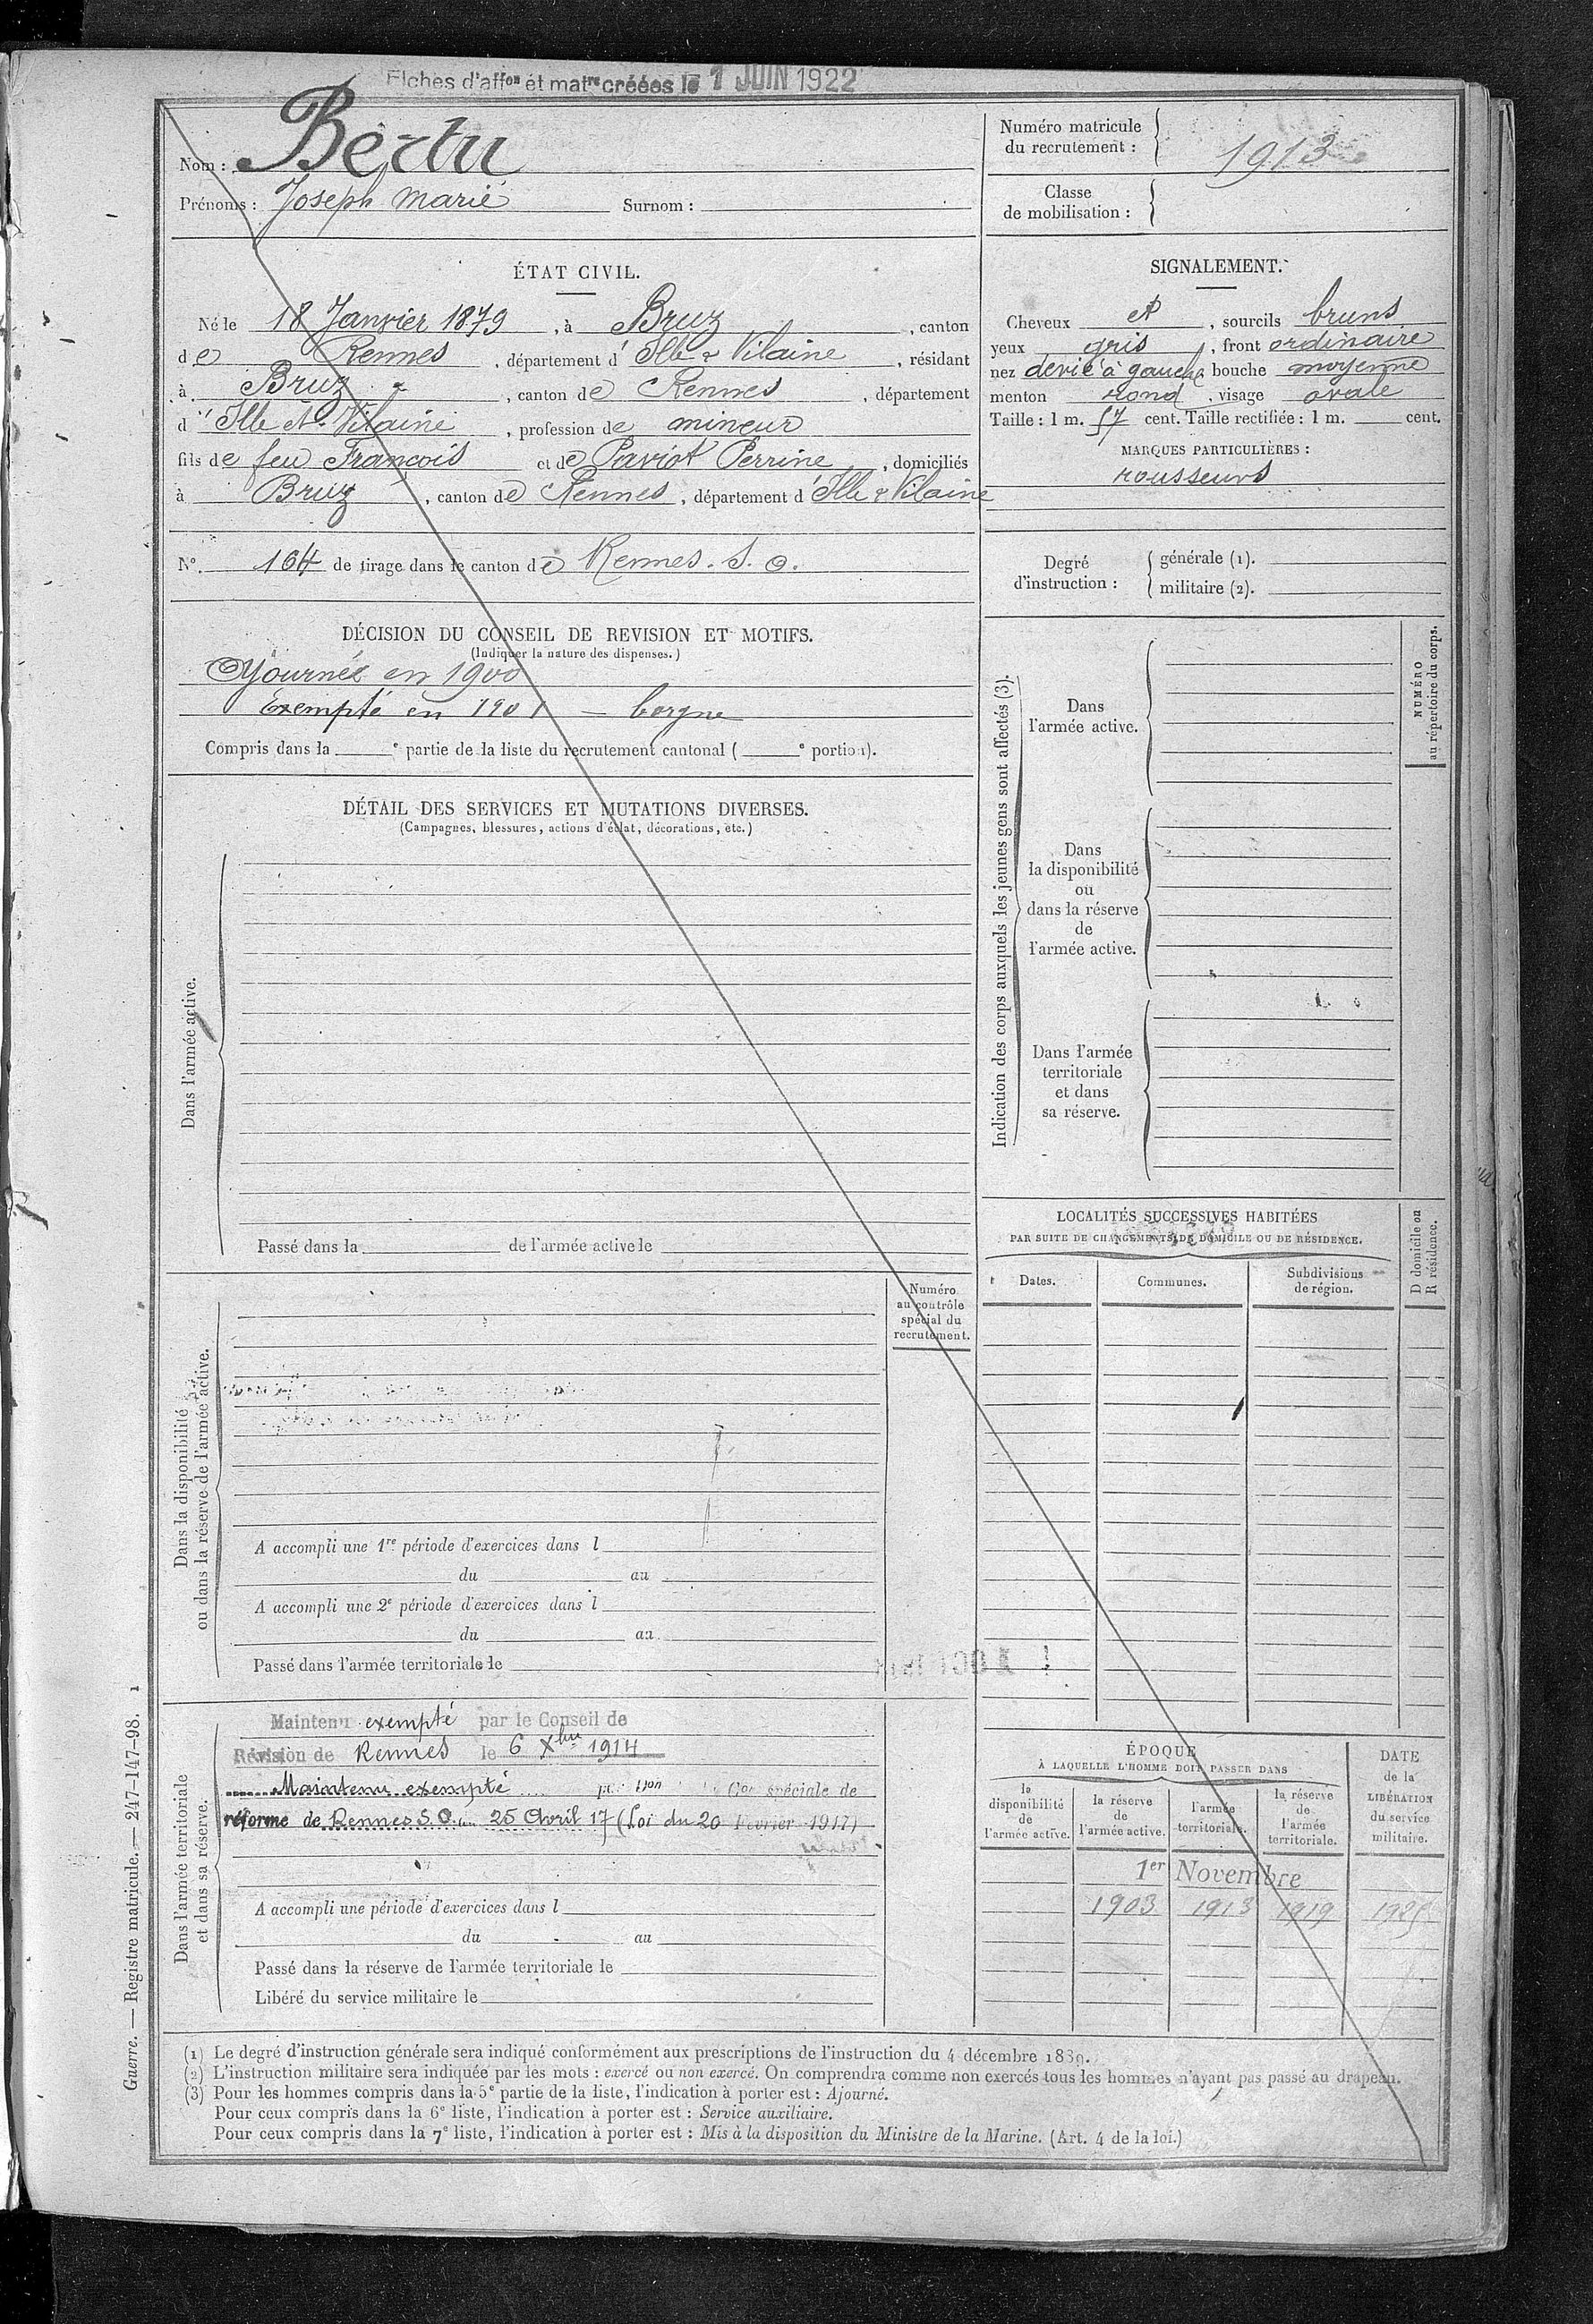 Fiches d'affon et matre créées le 1 JUIN 1922
Nom : Bertu
Prénoms : Joseph Marie Surnom :
Numéro matricule du recrutement : 1913
Classe de mobilisation :
ÉTAT CIVIL.
Né le 18 Janvier 1879, à Bruz, canton
de Rennes, département d'Ille & Vilaine, résidant
à Bruz, canton de Rennes, département
d'Ille et Vilaine, profession de mineur
fils de feu François et de Paviot Perrine, domiciliés
à Bruz, canton de Rennes, département d'Ille & Vilaine
N° 164 de tirage dans le canton de Rennes. S. O.
SIGNALEMENT.
Cheveux et, sourcils bruns
yeux gris, front ordinaire
nez dévié à gauche bouche moyenne
menton rond, visage ovale
Taille : 1 m. 57 cent. Taille rectifiée : 1 m. cent.
MARQUES PARTICULIÈRES :
rousseurs
Degré d'instruction :
générale (1).
militaire (2).
DÉCISION DU CONSEIL DE REVISION ET MOTIFS.
(Indiquer la nature des dispenses.)
Ajourné en 1900
Exempté en 1901 — borgne
Compris dans la e partie de la liste du recrutement cantonal ( e portion).
DÉTAIL DES SERVICES ET MUTATIONS DIVERSES.
(Campagnes, blessures, actions d'éclat, décorations, etc.)
Dans l'armée active.
Passé dans la de l'armée active le
Indication des corps auxquels les jeunes gens sont affectés (3).
Dans
l'armée active.
Dans
la disponibilité
ou
dans la réserve
de
l'armée active.
Dans l'armée
territoriale
et dans
sa réserve.
NUMÉRO
au répertoire du corps.
LOCALITÉS SUCCESSIVES HABITÉES
PAR SUITE DE CHANGEMENTS DE DOMICILE OU DE RÉSIDENCE.
Dates.
Communes.
Subdivisions
de région.
D domicile ou
R résidence.
Numéro
au contrôle
spécial du
recrutement.
Dans la disponibilité
ou dans la réserve de l'armée active.
A accompli une 1re période d'exercices dans l
du au
A accompli une 2e période d'exercices dans l
du au
Passé dans l'armée territoriale le
Dans l'armée territoriale
et dans sa réserve.
Maintenu exempté par le Conseil de
Révision de Rennes le 6 Xbre 1914
Maintenu exempté Con spéciale de
réforme de Rennes S.O. du 25 Avril 17 (Loi du 20 Février 1917)
A accompli une période d'exercices dans l
du au
Passé dans la réserve de l'armée territoriale le
Libéré du service militaire le
ÉPOQUE
À LAQUELLE L'HOMME DOIT PASSER DANS
la
disponibilité
de
l'armée active.
la réserve
de
l'armée active.
l'armée
territoriale.
la réserve
de
l'armée
territoriale.
DATE
de la
LIBÉRATION
du service
militaire.
1er Novembre
1903 1913 1919 1925
(1) Le degré d'instruction générale sera indiqué conformément aux prescriptions de l'instruction du 4 décembre 1889.
(2) L'instruction militaire sera indiquée par les mots : exercé ou non exercé. On comprendra comme non exercés tous les hommes n'ayant pas passé au drapeau.
(3) Pour les hommes compris dans la 5e partie de la liste, l'indication à porter est : Ajourné.
Pour ceux compris dans la 6e liste, l'indication à porter est : Service auxiliaire.
Pour ceux compris dans la 7e liste, l'indication à porter est : Mis à la disposition du Ministre de la Marine. (Art. 4 de la loi.)
Guerre. — Registre matricule. — 247-147-98. 1